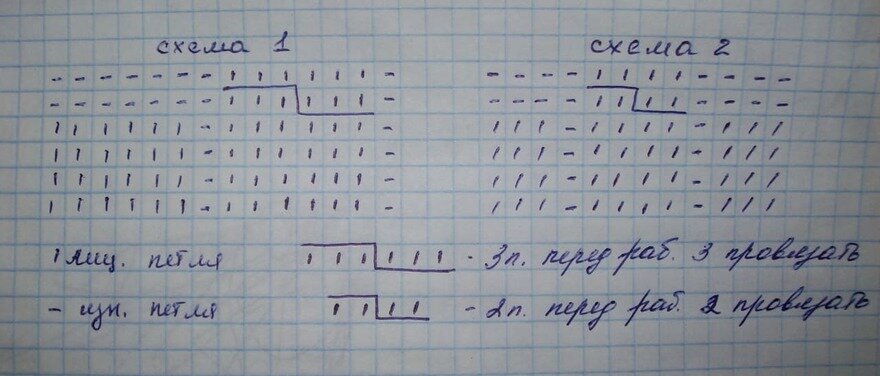 схема 1 схема 2
- - - - - - - ı ı ı ı ı ı - - - - - ı ı ı ı - - - -
- - - - - - - ı ı ı ı ı ı - - - - - ı ı ı ı - - - -
ı ı ı ı ı ı - ı ı ı ı ı ı - ı ı ı - ı ı ı ı - ı ı ı
ı ı ı ı ı ı - ı ı ı ı ı ı - ı ı ı - ı ı ı ı - ı ı ı
ı ı ı ı ı ı - ı ı ı ı ı ı - ı ı ı - ı ı ı ı - ı ı ı
ı ı ı ı ı ı - ı ı ı ı ı ı - ı ı ı - ı ı ı ı - ı ı ı
ı лиц. петля ı ı ı ı ı ı - 3п. перед раб. 3 провязать
- изн. петля ı ı ı ı - 2п. перед раб. 2 провязать